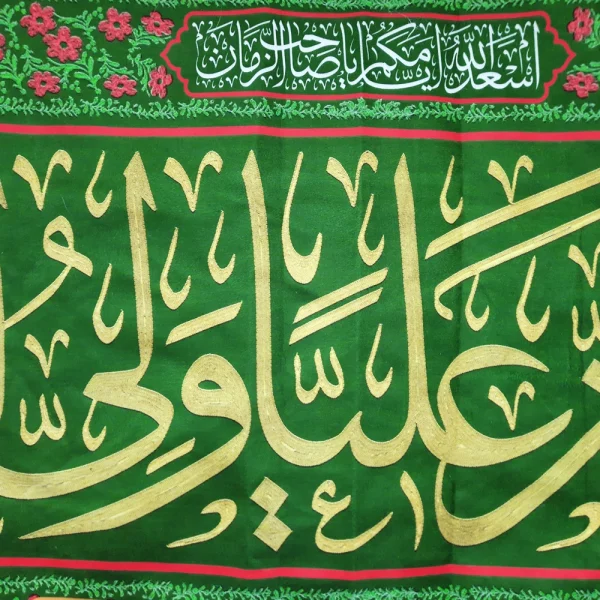 اسعد الله ایامکم یا صاحب الزمان
علیا ولی